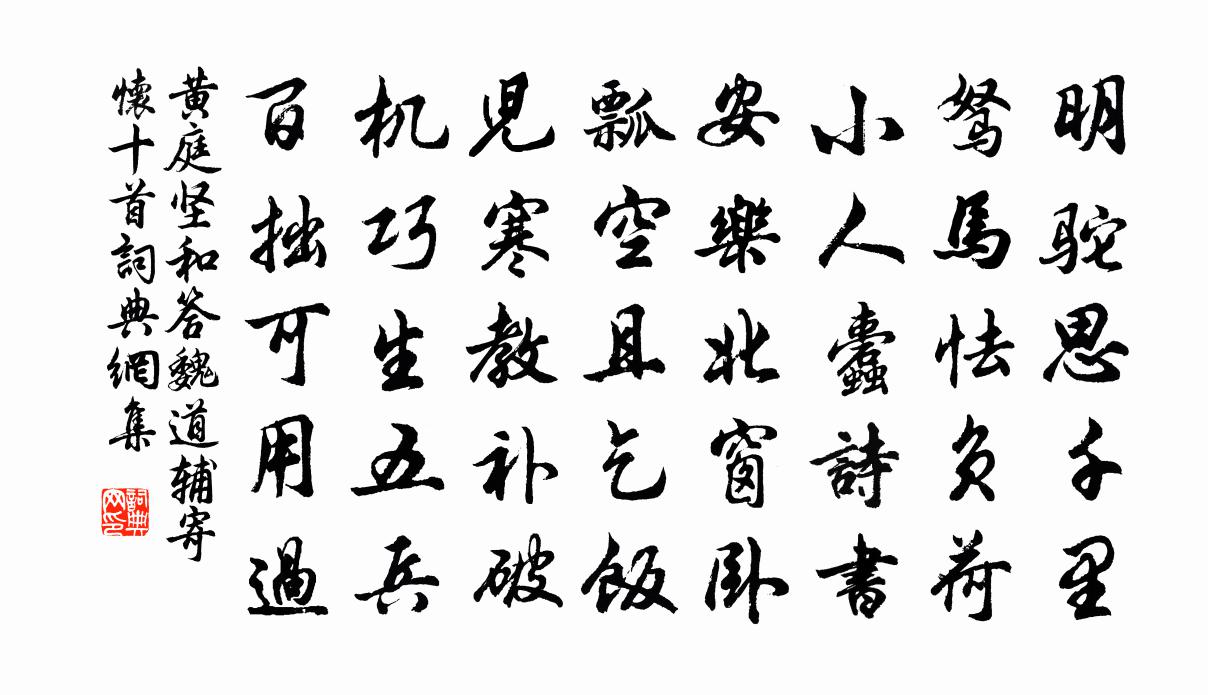 明駝思千里
駑馬怯负荷
小人蠹詩書
安樂北窗卧
瓢空且乞飯
児寒教补破
机巧生五兵
百拙可用過
黄庭坚和答魏道辅寄
懷十首詞典網集
詞典
网印